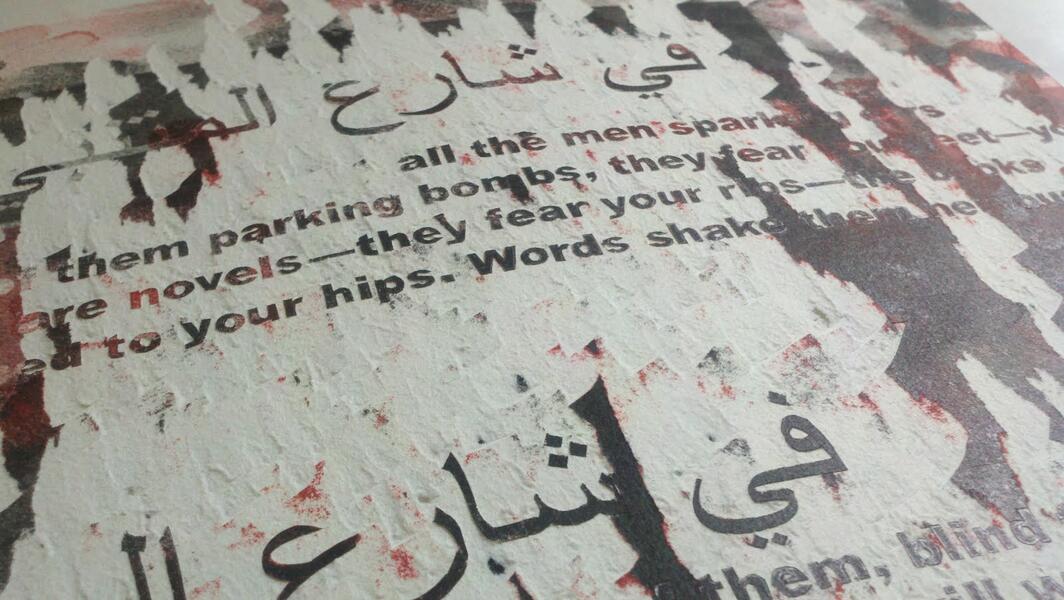 في شارع
all the men
them parking bombs, they fear feet—
are novels—they fear your ribs—the books
to your hips. Words shake them
في شارع
them, blind
will